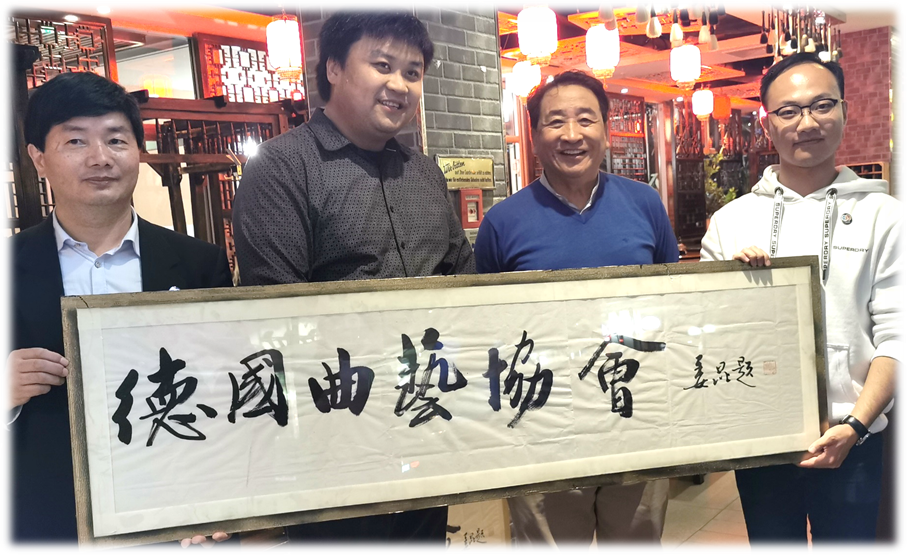 德國曲藝協會
姜昆題
SUPERDRY
SUPERDRY
SUPERDRY